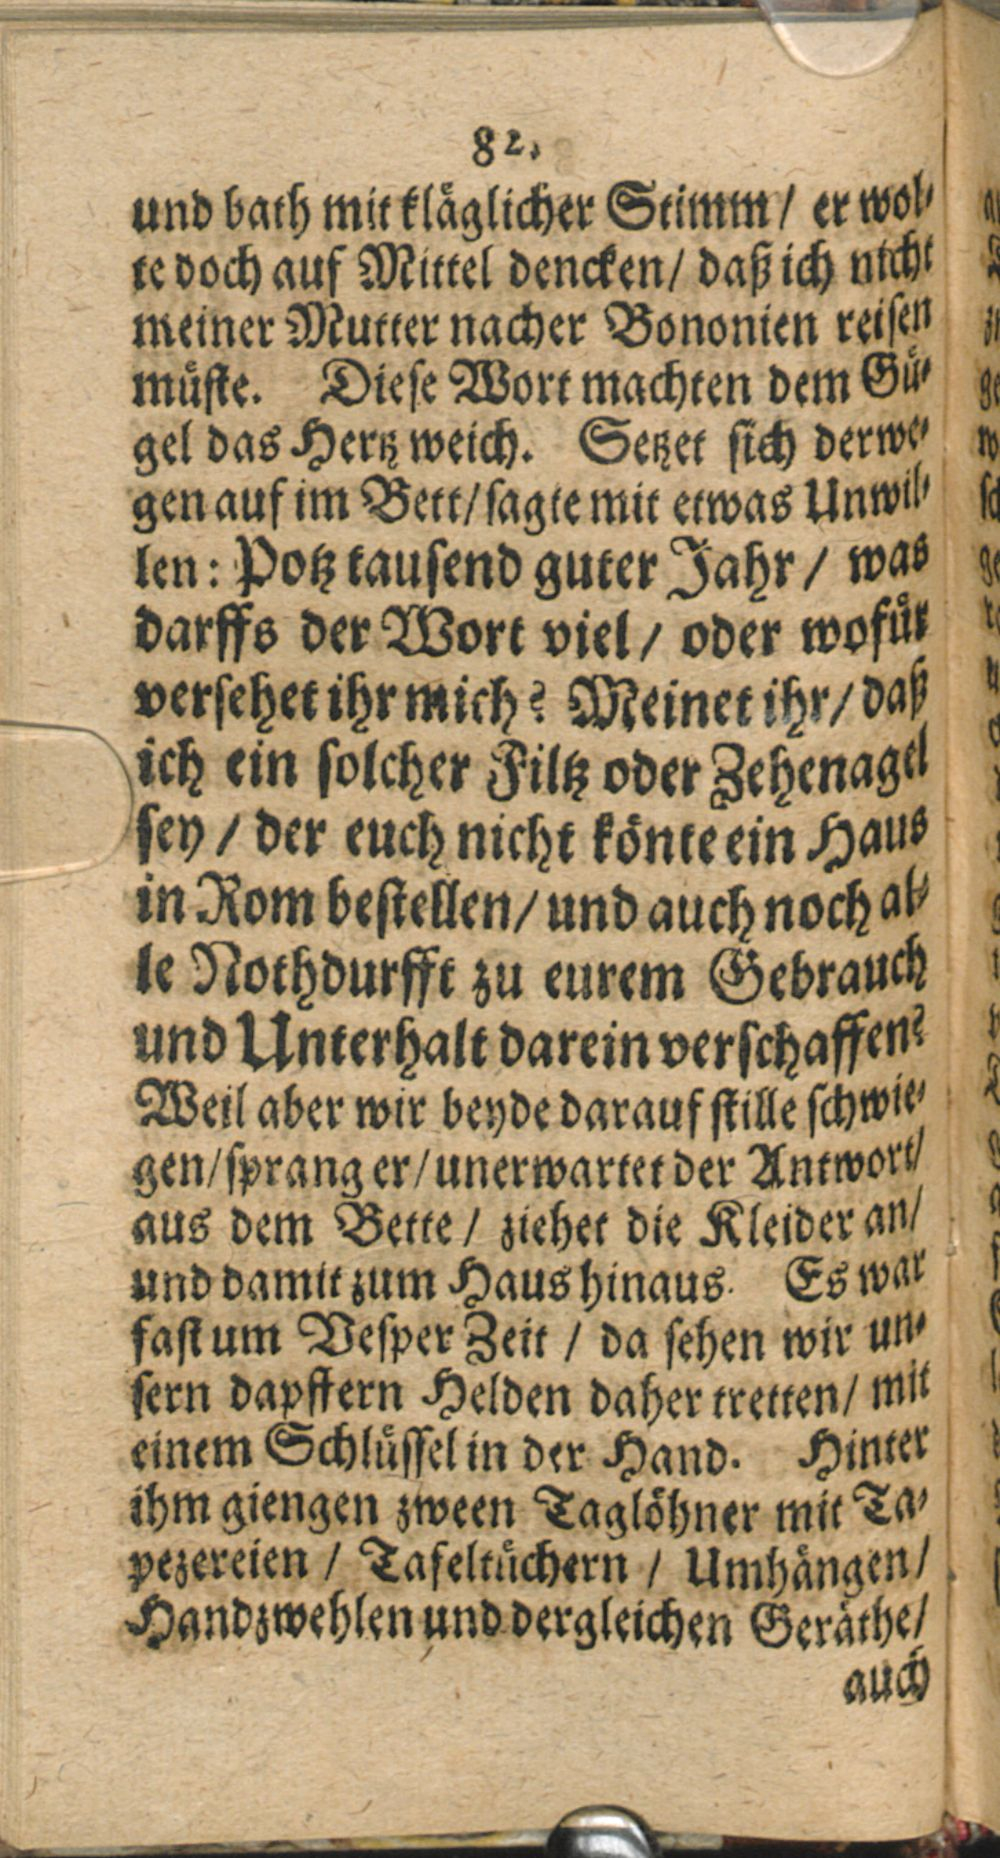 82.
und bath mit kläglicher Stimm / er wol-
te doch auf Mittel dencken / daß ich nicht
meiner Mutter nacher Bononien reisen
müste. Diese Wort machten dem Gü-
gel das Hertz weich. Setzet sich derwe-
gen auf im Bett / sagte mit etwas Unwil-
len: Potz tausend guter Jahr / was
darffs der Wort viel / oder wofür
versehet ihr mich? Meinet ihr / daß
ich ein solcher Filtz oder Zehenagel
sey / der euch nicht könte ein Haus
in Rom bestellen / und auch noch al-
le Nothdurfft zu eurem Gebrauch
und Unterhalt darein verschaffen?
Weil aber wir beyde darauf stille schwie-
gen / sprang er / unerwartet der Antwort /
aus dem Bette / ziehet die Kleider an /
und damit zum Haus hinaus. Es war
fast um Vesper Zeit / da sehen wir un-
sern dapffern Helden daher tretten / mit
einem Schlüssel in der Hand. Hinter
ihm giengen zween Taglöhner mit Ta-
pezereien / Tafeltüchern / Umhängen /
Handzwehlen und dergleichen Geräthe /
auch